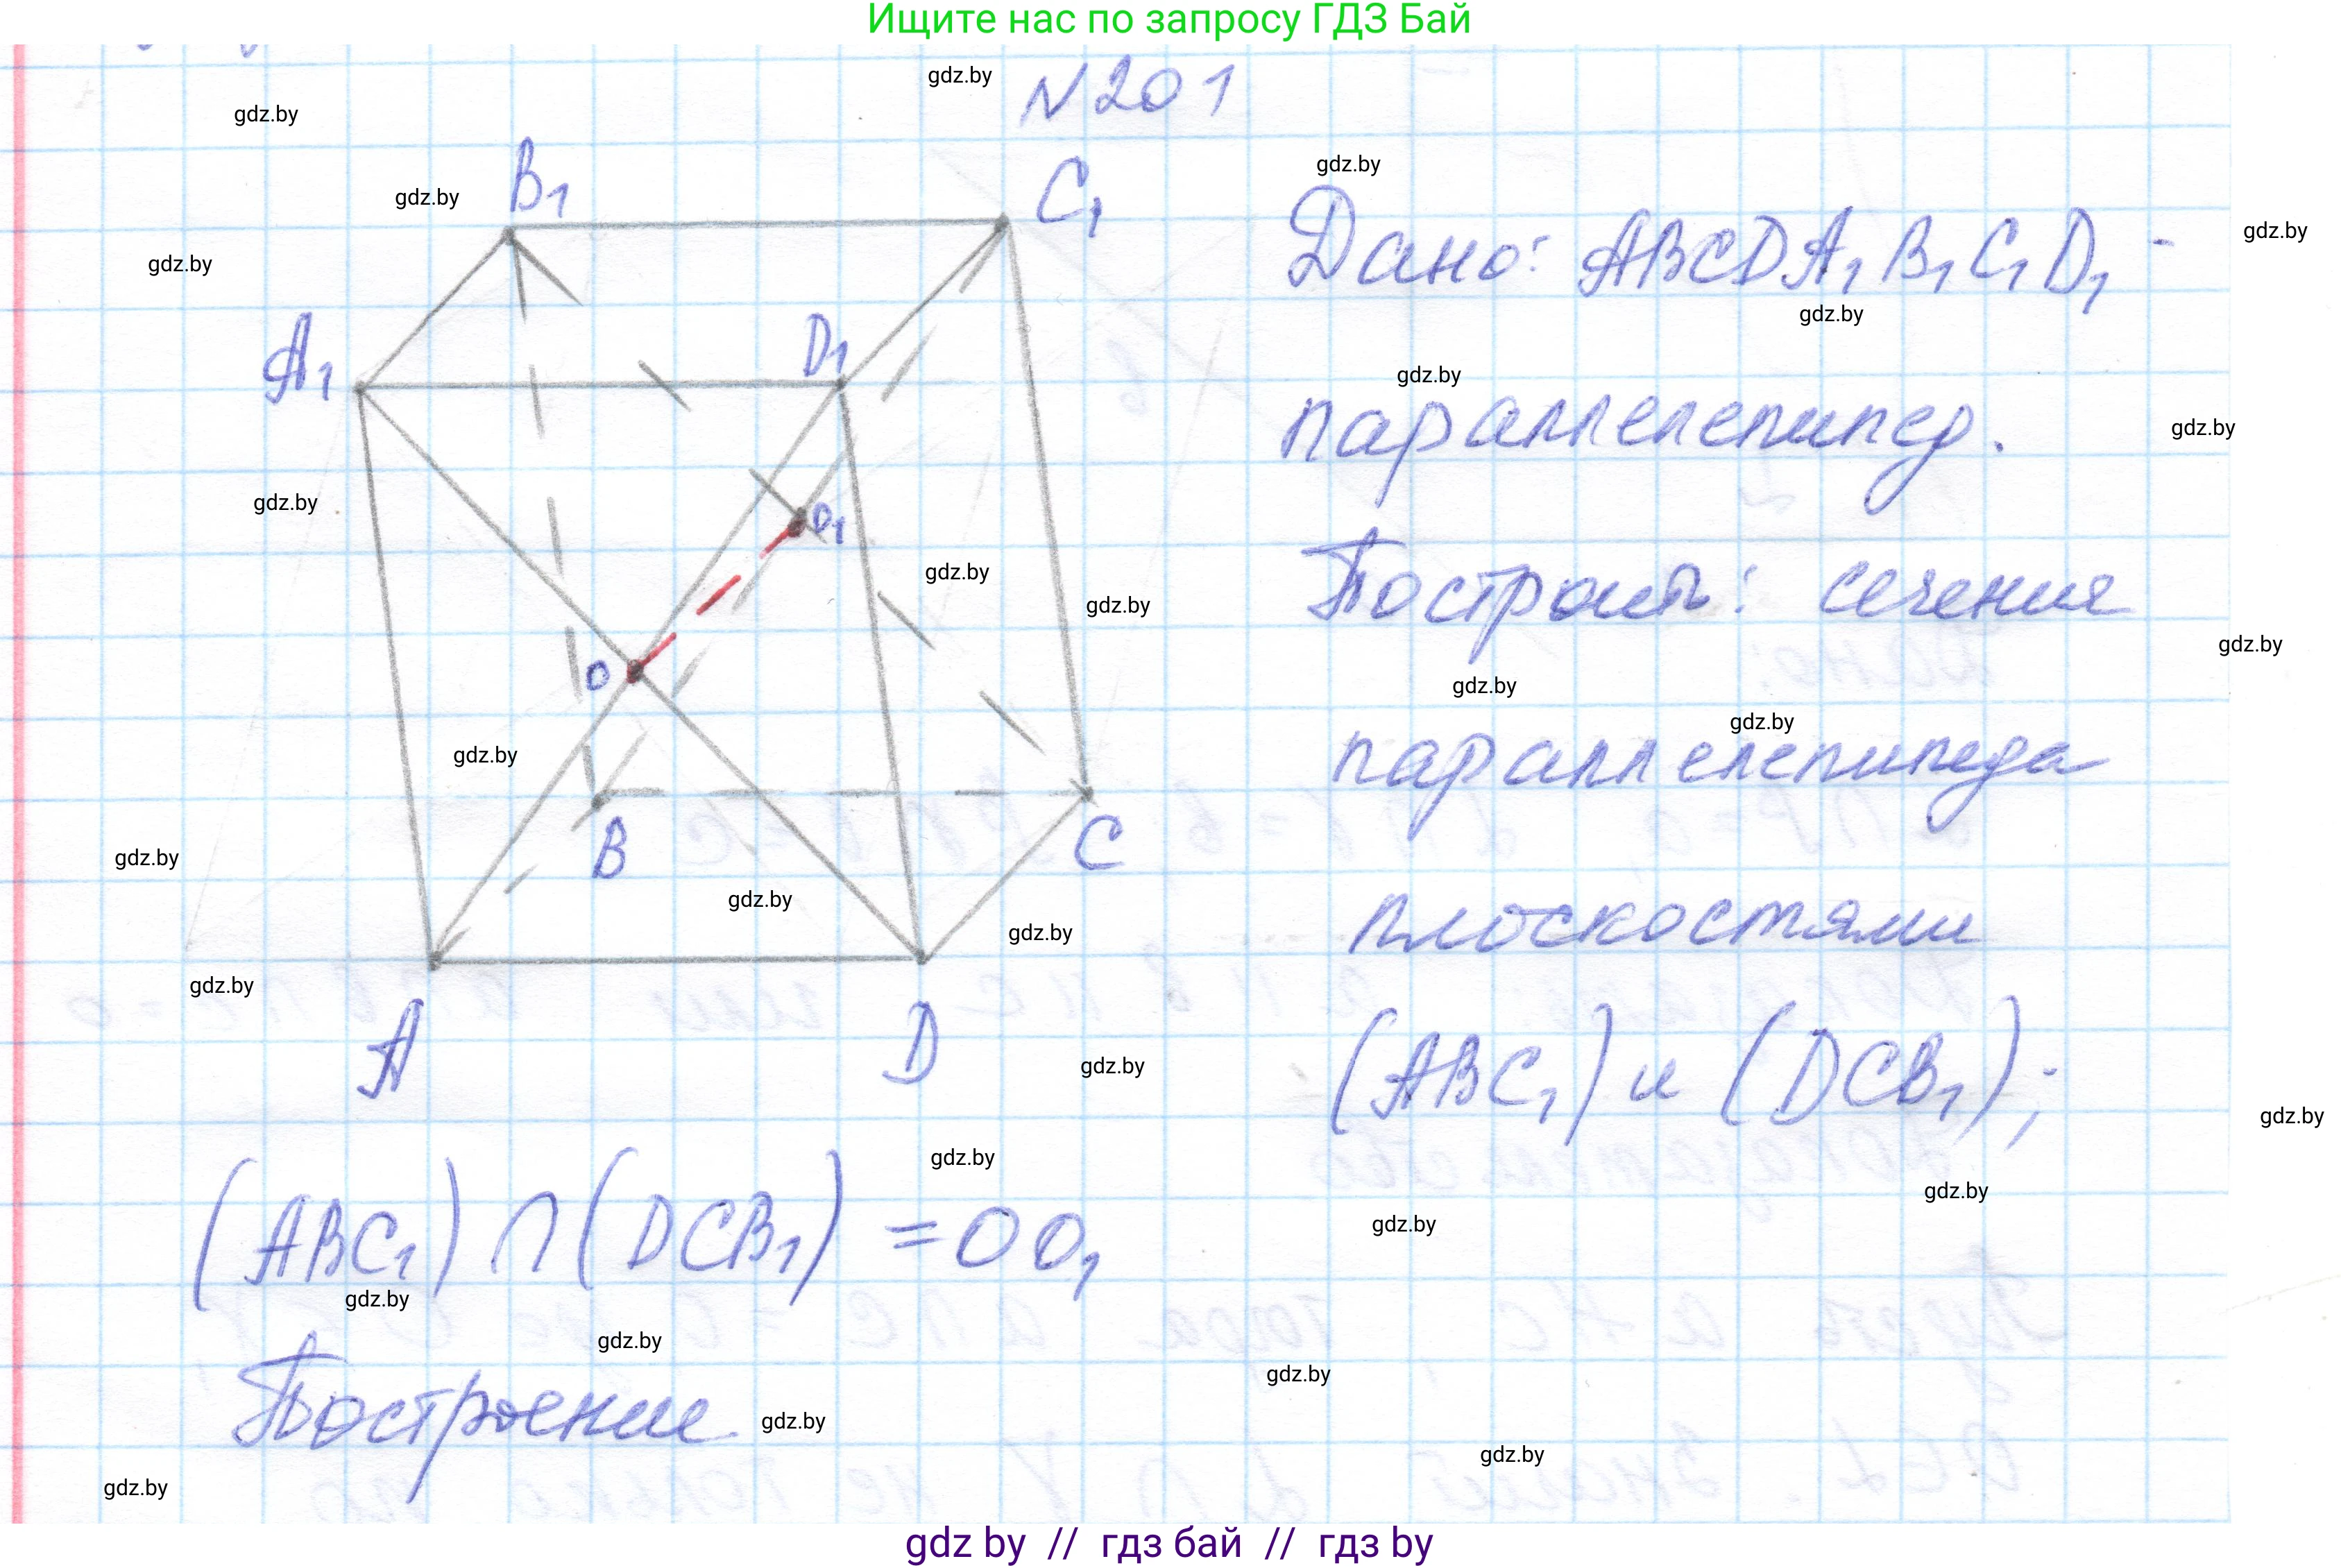 Ищите нас по запросу ГДЗ Бай
N 201
B₁
C₁
A₁
D₁
O₁
O
B
C
A
D
Дано: ABCDA₁B₁C₁D₁ -
параллелепипед.
Построить: сечения
параллелепипеда
плоскостями
(ABC₁) и (DCB₁);
(ABC₁) ∩ (DCB₁) = OO₁
Построение.
gdz.by
gdz by // гдз бай // гдз by